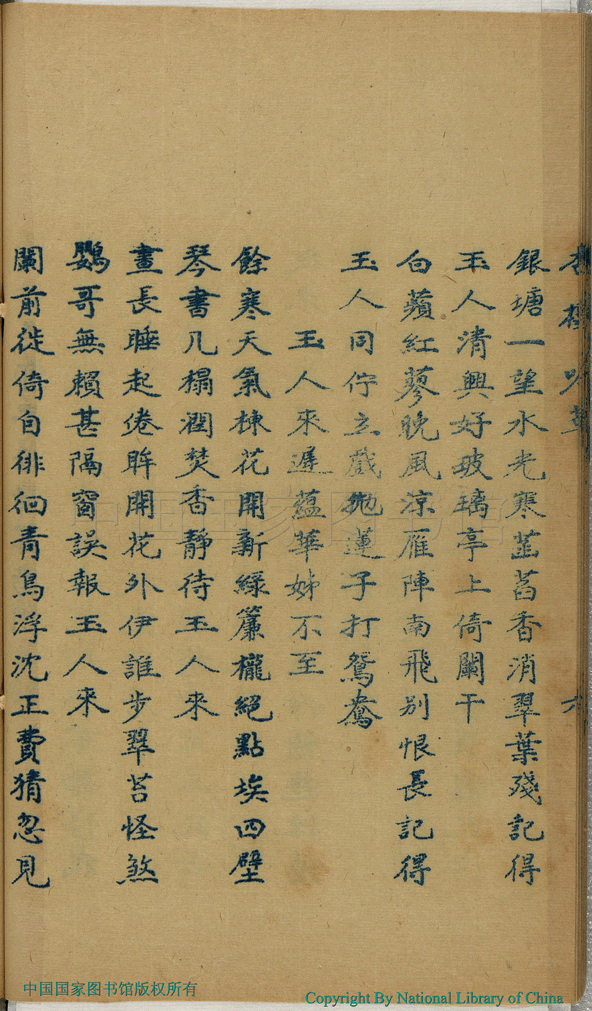 吟草
六
銀塘一望水光寒菡萏香消翠葉殘記得
玉人清興好玻璃亭上倚闌干
白蘋紅蓼晚風涼雁陣南飛别恨長記得
玉人同佇立戲抛蓮子打鴛鴦
玉人來遲蘊華姊不至
餘寒天氣楝花開新綠簾櫳絕點埃四壁
琴書几榻潤焚香靜待玉人來
晝長睡起倦眸開花外伊誰步翠苔怪煞
鸚哥無賴甚隔窗誤報玉人来
闌前徙倚自徘徊青鳥浮沈正費猜忽見
中国国家图书馆
中国国家图书馆版权所有
Copyright By National Library of China